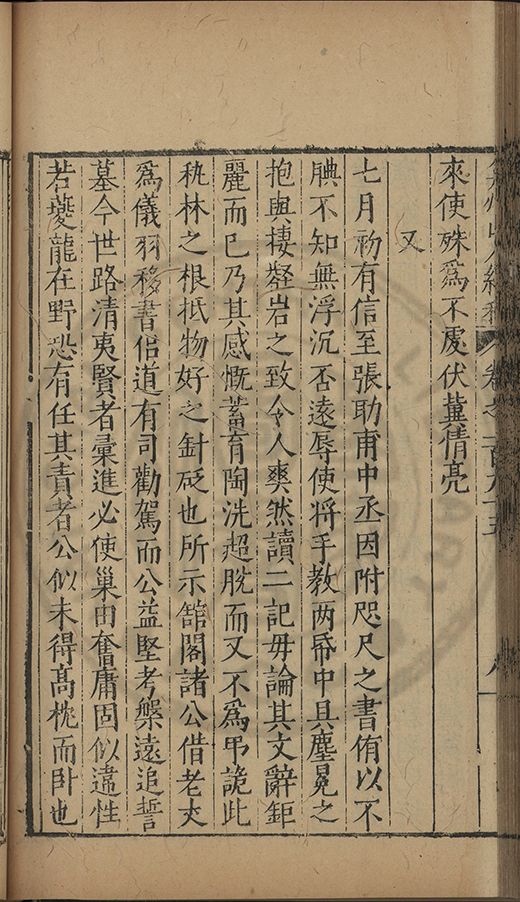 卷之一百九十五
八
來使殊爲不處伏冀情亮
又
七月初有信至張助甫中丞因附咫尺之書侑以不
腆不知無浮沉否遠辱使将手教两帋中具塵冕之
抱與棲礙岩之致令人爽然讀二記毋論其文辭鉅
麗而已乃其感慨蓄育陶洗超脫而又不爲弔詭此
秇林之根抵物好之針砭也所示舘閣諸公借老夫
爲儀羽移書侶道有司勸駕而公益堅考槃遠追誓
墓今世路清夷賢者彙進必使巢由奮庸固似違性
若夔龍在野恐有任其責者公似未得髙枕而卧也